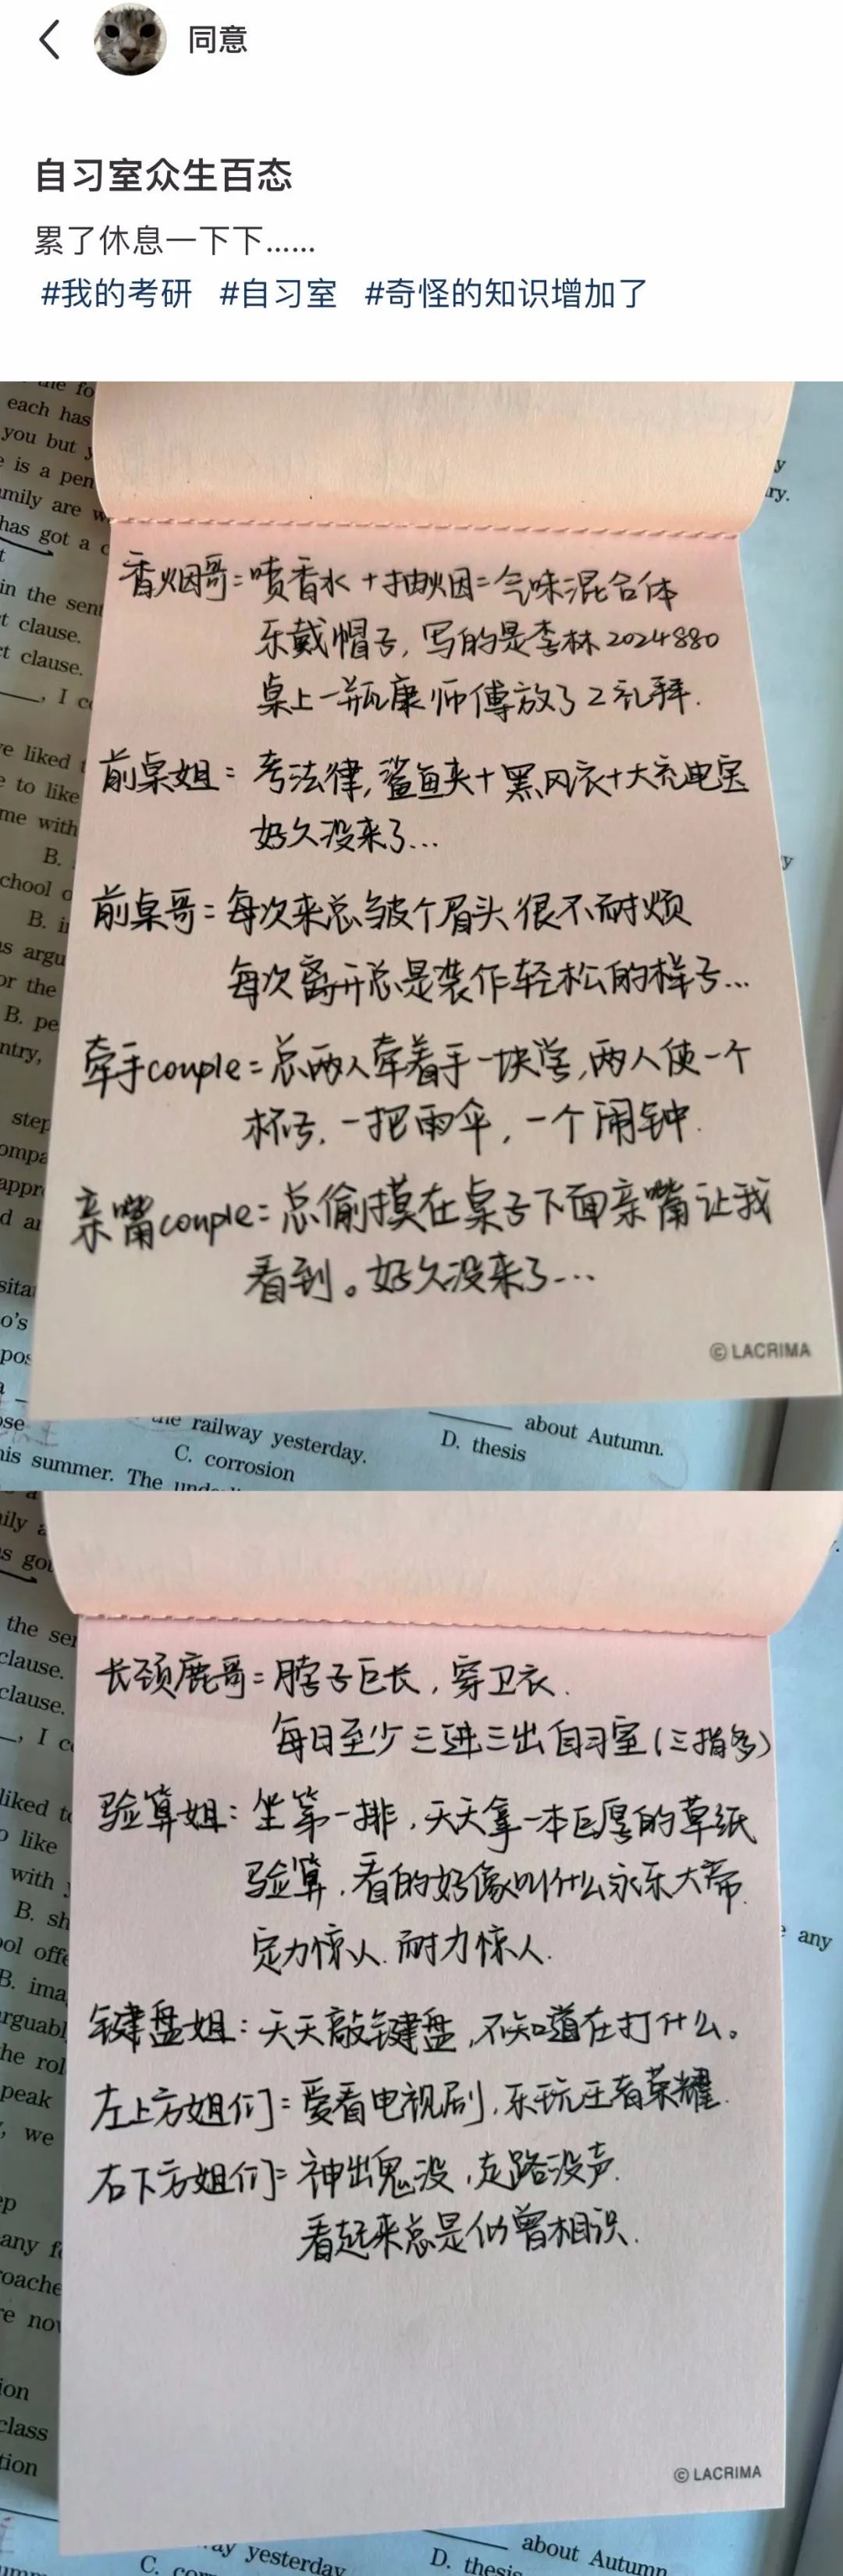 同意
自习室众生百态
累了休息一下下……
#我的考研 #自习室 #奇怪的知识增加了
the fo
each has
you but y
e is a pen
amily are w
has got a c
t
in the sent
t clause.
ct clause.
, I c
ve liked t
e to like
me with
B.
chool o
B. i
as argu
or the
B. pe
ntry,
step
ompa
appr
d a
sita
o's
pos
a
ose
y
ry.
y
香烟哥=喷香水+抽烟=气味混合体
乐戴帽子,写的是李林2024880
桌上一瓶康师傅放了2礼拜.
前桌姐=考法律,鲨鱼夹+黑风衣+大充电宝
好久没来了...
前桌哥=每次来总皱个眉头很不耐烦
每次离开总是装作轻松的样子...
牵手couple=总两人牵着手一块学,两人使一个
杯子,一把雨伞,一个闹钟.
亲嘴couple=总偷摸在桌子下面亲嘴让我
看到。好久没来了...
© LACRIMA
the railway yesterday. ____ about Autumn.
C. corrosion D. thesis
his summer. The
ily a
s got
the sen
clause.
clause.
, I c
liked to
o like
with
B. sh
ool offe
B. ima
rguabl
he rol
peak
, we
ep
any f
roache
re nov
ion
class
tion
e any
长颈鹿哥=脖子巨长,穿卫衣.
每日至少三进三出自习室(三指多)
验算姐:坐第一排,天天拿一本巨厚的草纸
验算,看的好像叫什么永乐大帝
定力惊人.耐力惊人.
键盘姐:天天敲键盘,不知道在打什么。
左上方姐们=爱看电视剧,乐玩王者荣耀.
右下方姐们=神出鬼没,走路没声.
看起来总是似曾相识.
© LACRIMA
ay yesterday ____ about Autumn
C. D. thesis